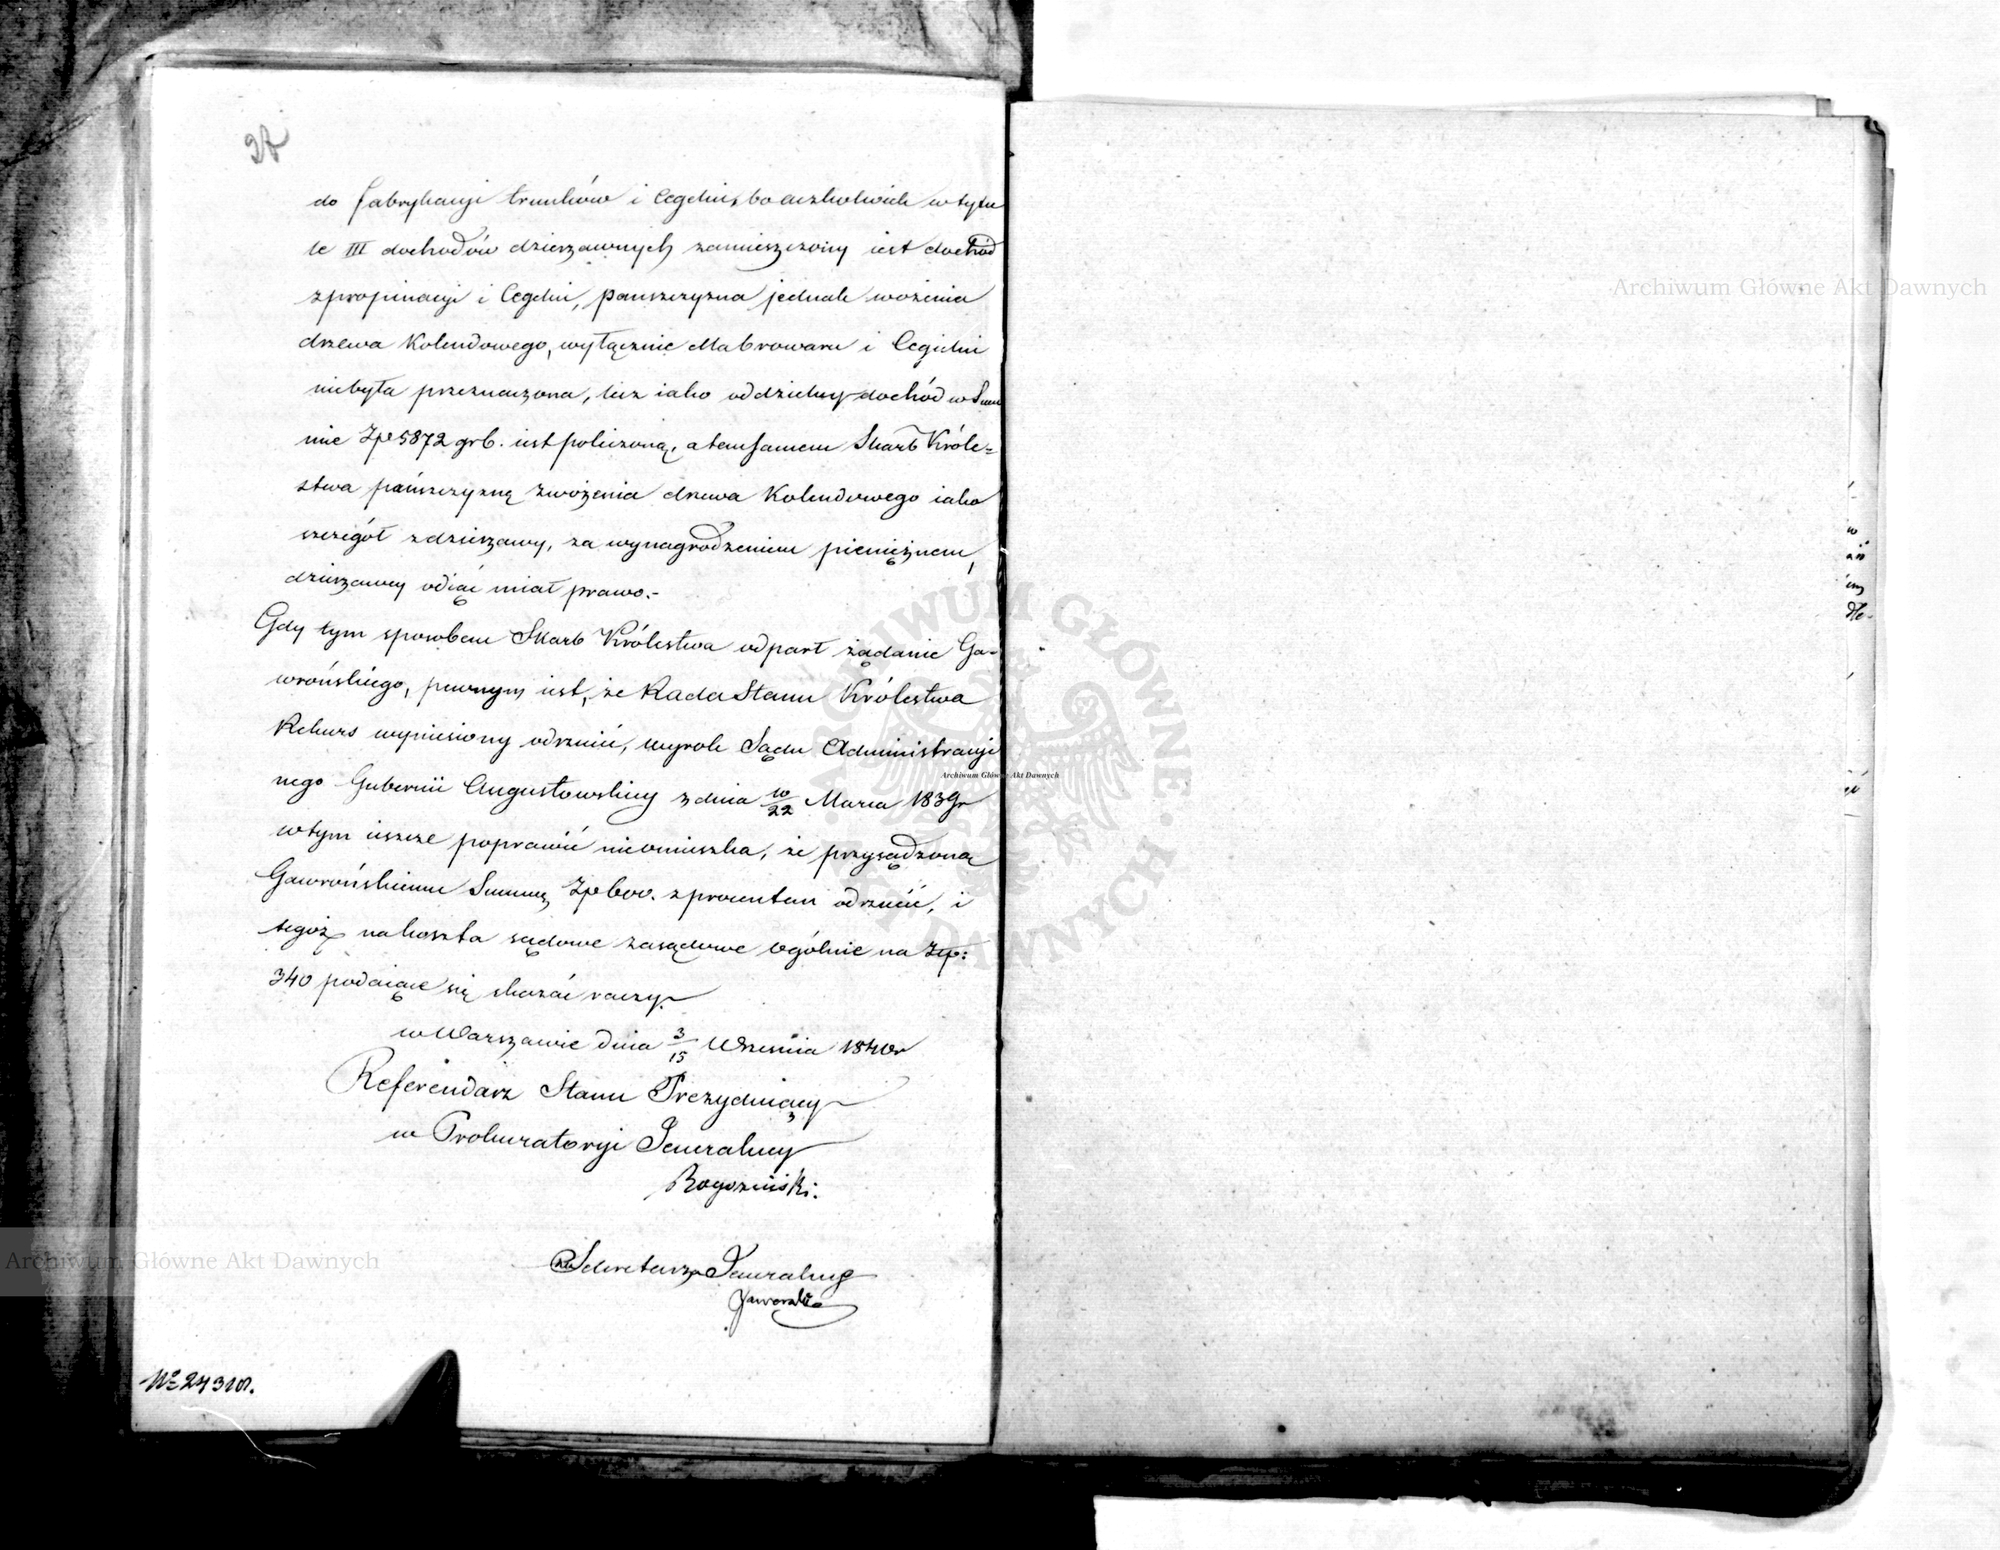 do fabrykacyi trunków i Cegielni, bo aczkolwiek w tytu
le III dochodów dzierzawnych zamieszczony iest dochód
z propinacyi i Cegielni, pańszczyzna jednak wożenia
drzewa Kolendowego, wyłącznie dla browaru i Cegielni
niebyła przeznaczona, lecz iako oddzielny dochód w Sum
mie Zp 5872 gr 6. iest policzoną, a temsamem Skarb Króle=
stwa pańszczyznę zwożenia drzewa Kolendowego iako
szczegół z dzierzawy, za wynagrodzeniem pieniężnem,
dzierzawcy odiąć miał prawo.-
Gdy tym sposobem Skarb Królestwa odparł żądanie Ga-
wrońskiego, pewnym iest, że Rada Stanu Królestwa
Rekurs wyniesiony odrzuci, wyrok Sądu Administracyi
nego Gubernii Augustowskiey z dnia 10/22 Marca 1839 r
w tym ieszcze poprawić nieomieszka, że przysądzoną
Gawrońskiemu Summę Zp 600. z procentem odrzucić, i
tegoż na koszta sądowe zasądowe ogólnie na Zp:
340 podaiące się skazać raczy.-
w Warszawie dnia 3/15 Września 1840 r
Referendarz Stanu Prezyduiący
w Prokuratoryi Jeneralney
Sekretarz Jeneralny
Archiwum Główne Akt Dawnych
Archiwum Główne Akt Dawnych
Archiwum Główne Akt Dawnych
ARCHIWUM GŁÓWNE AKT DAWNYCH